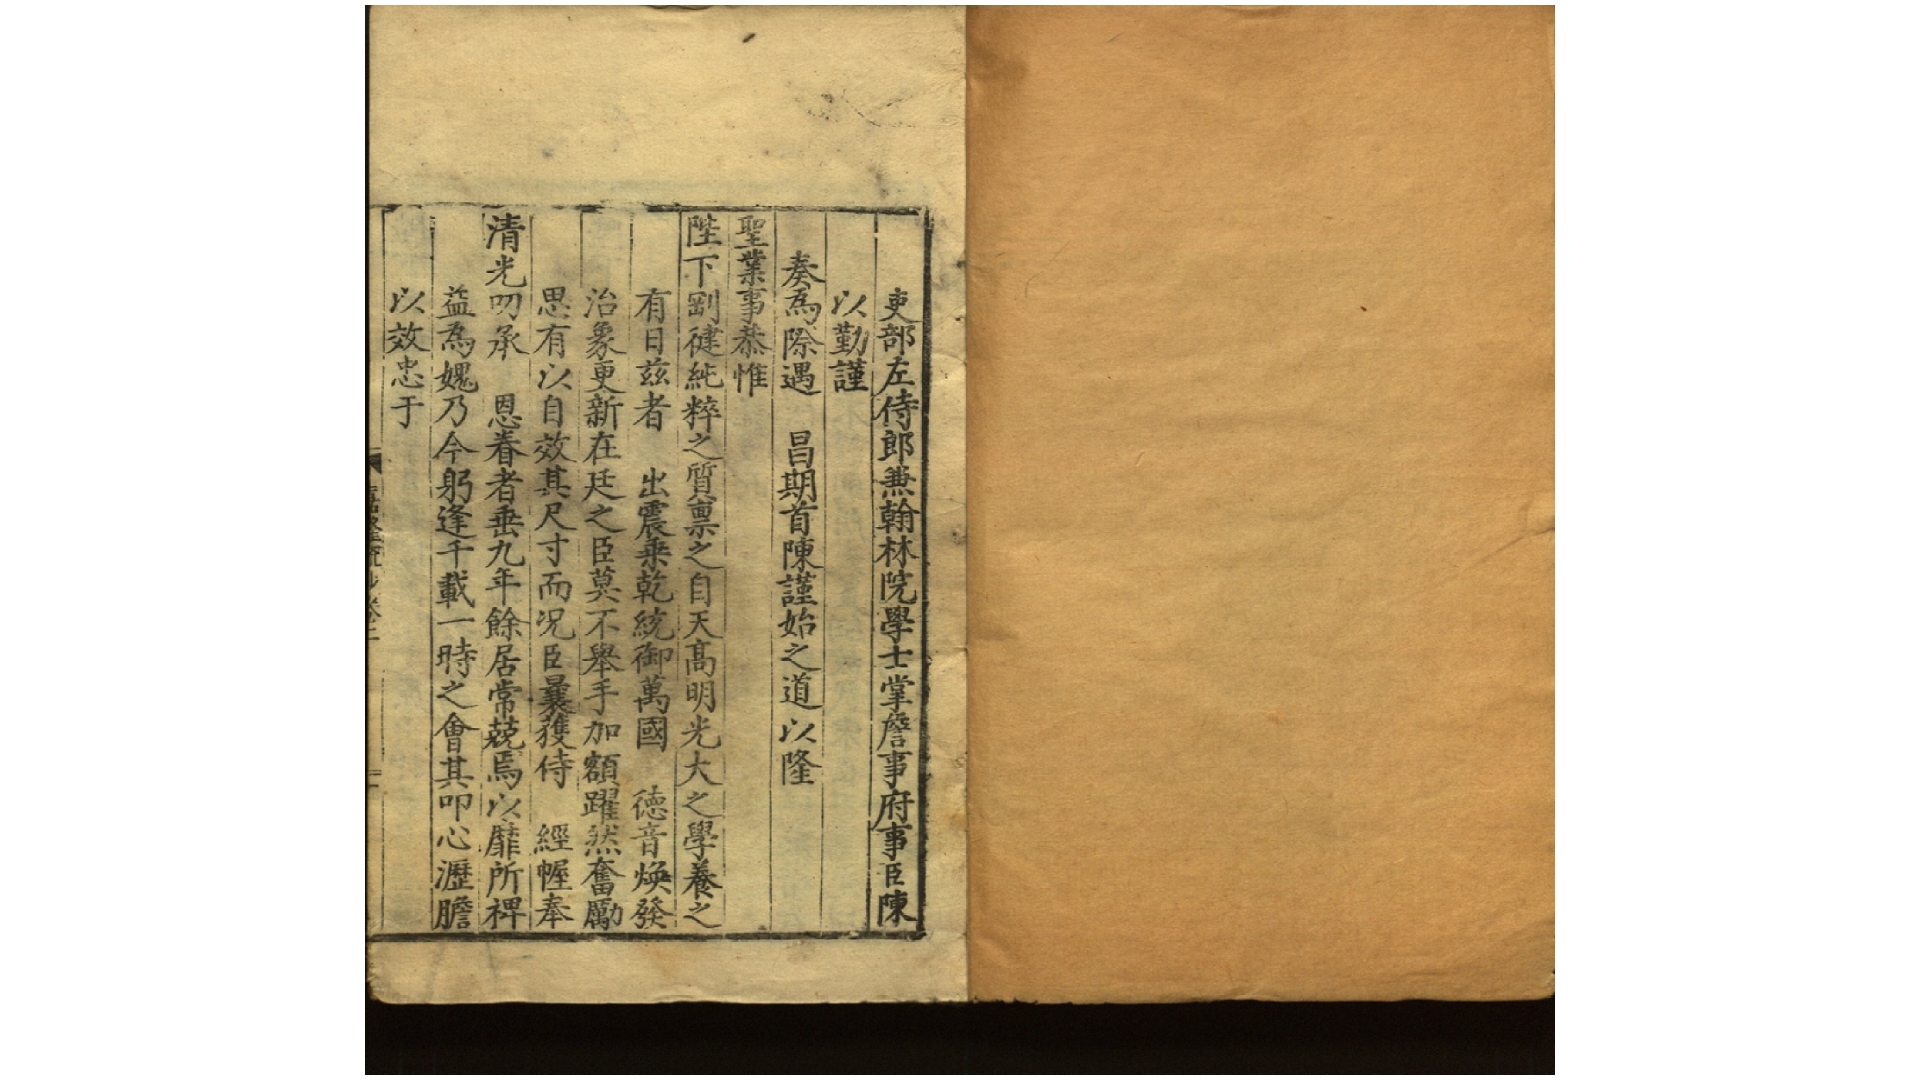 吏部左侍郎兼翰林院學士掌詹事府事臣陳
以勤謹
奏爲際遇 昌期首陳謹始之道以隆
聖業事恭惟
陛下剛健純粹之質禀之自天高明光大之學養之
有日兹者 出震乗乾統御萬國 徳音煥發
治象更新在廷之臣莫不舉手加額躍然奮勵
思有以自效其尺寸而况臣曩獲侍 經幄奉
清光叨承 恩眷者垂九年餘居常兢焉以靡所裨
益為媿乃今躬逢千載一時之會其叩心瀝膽
以效忠于
卷二